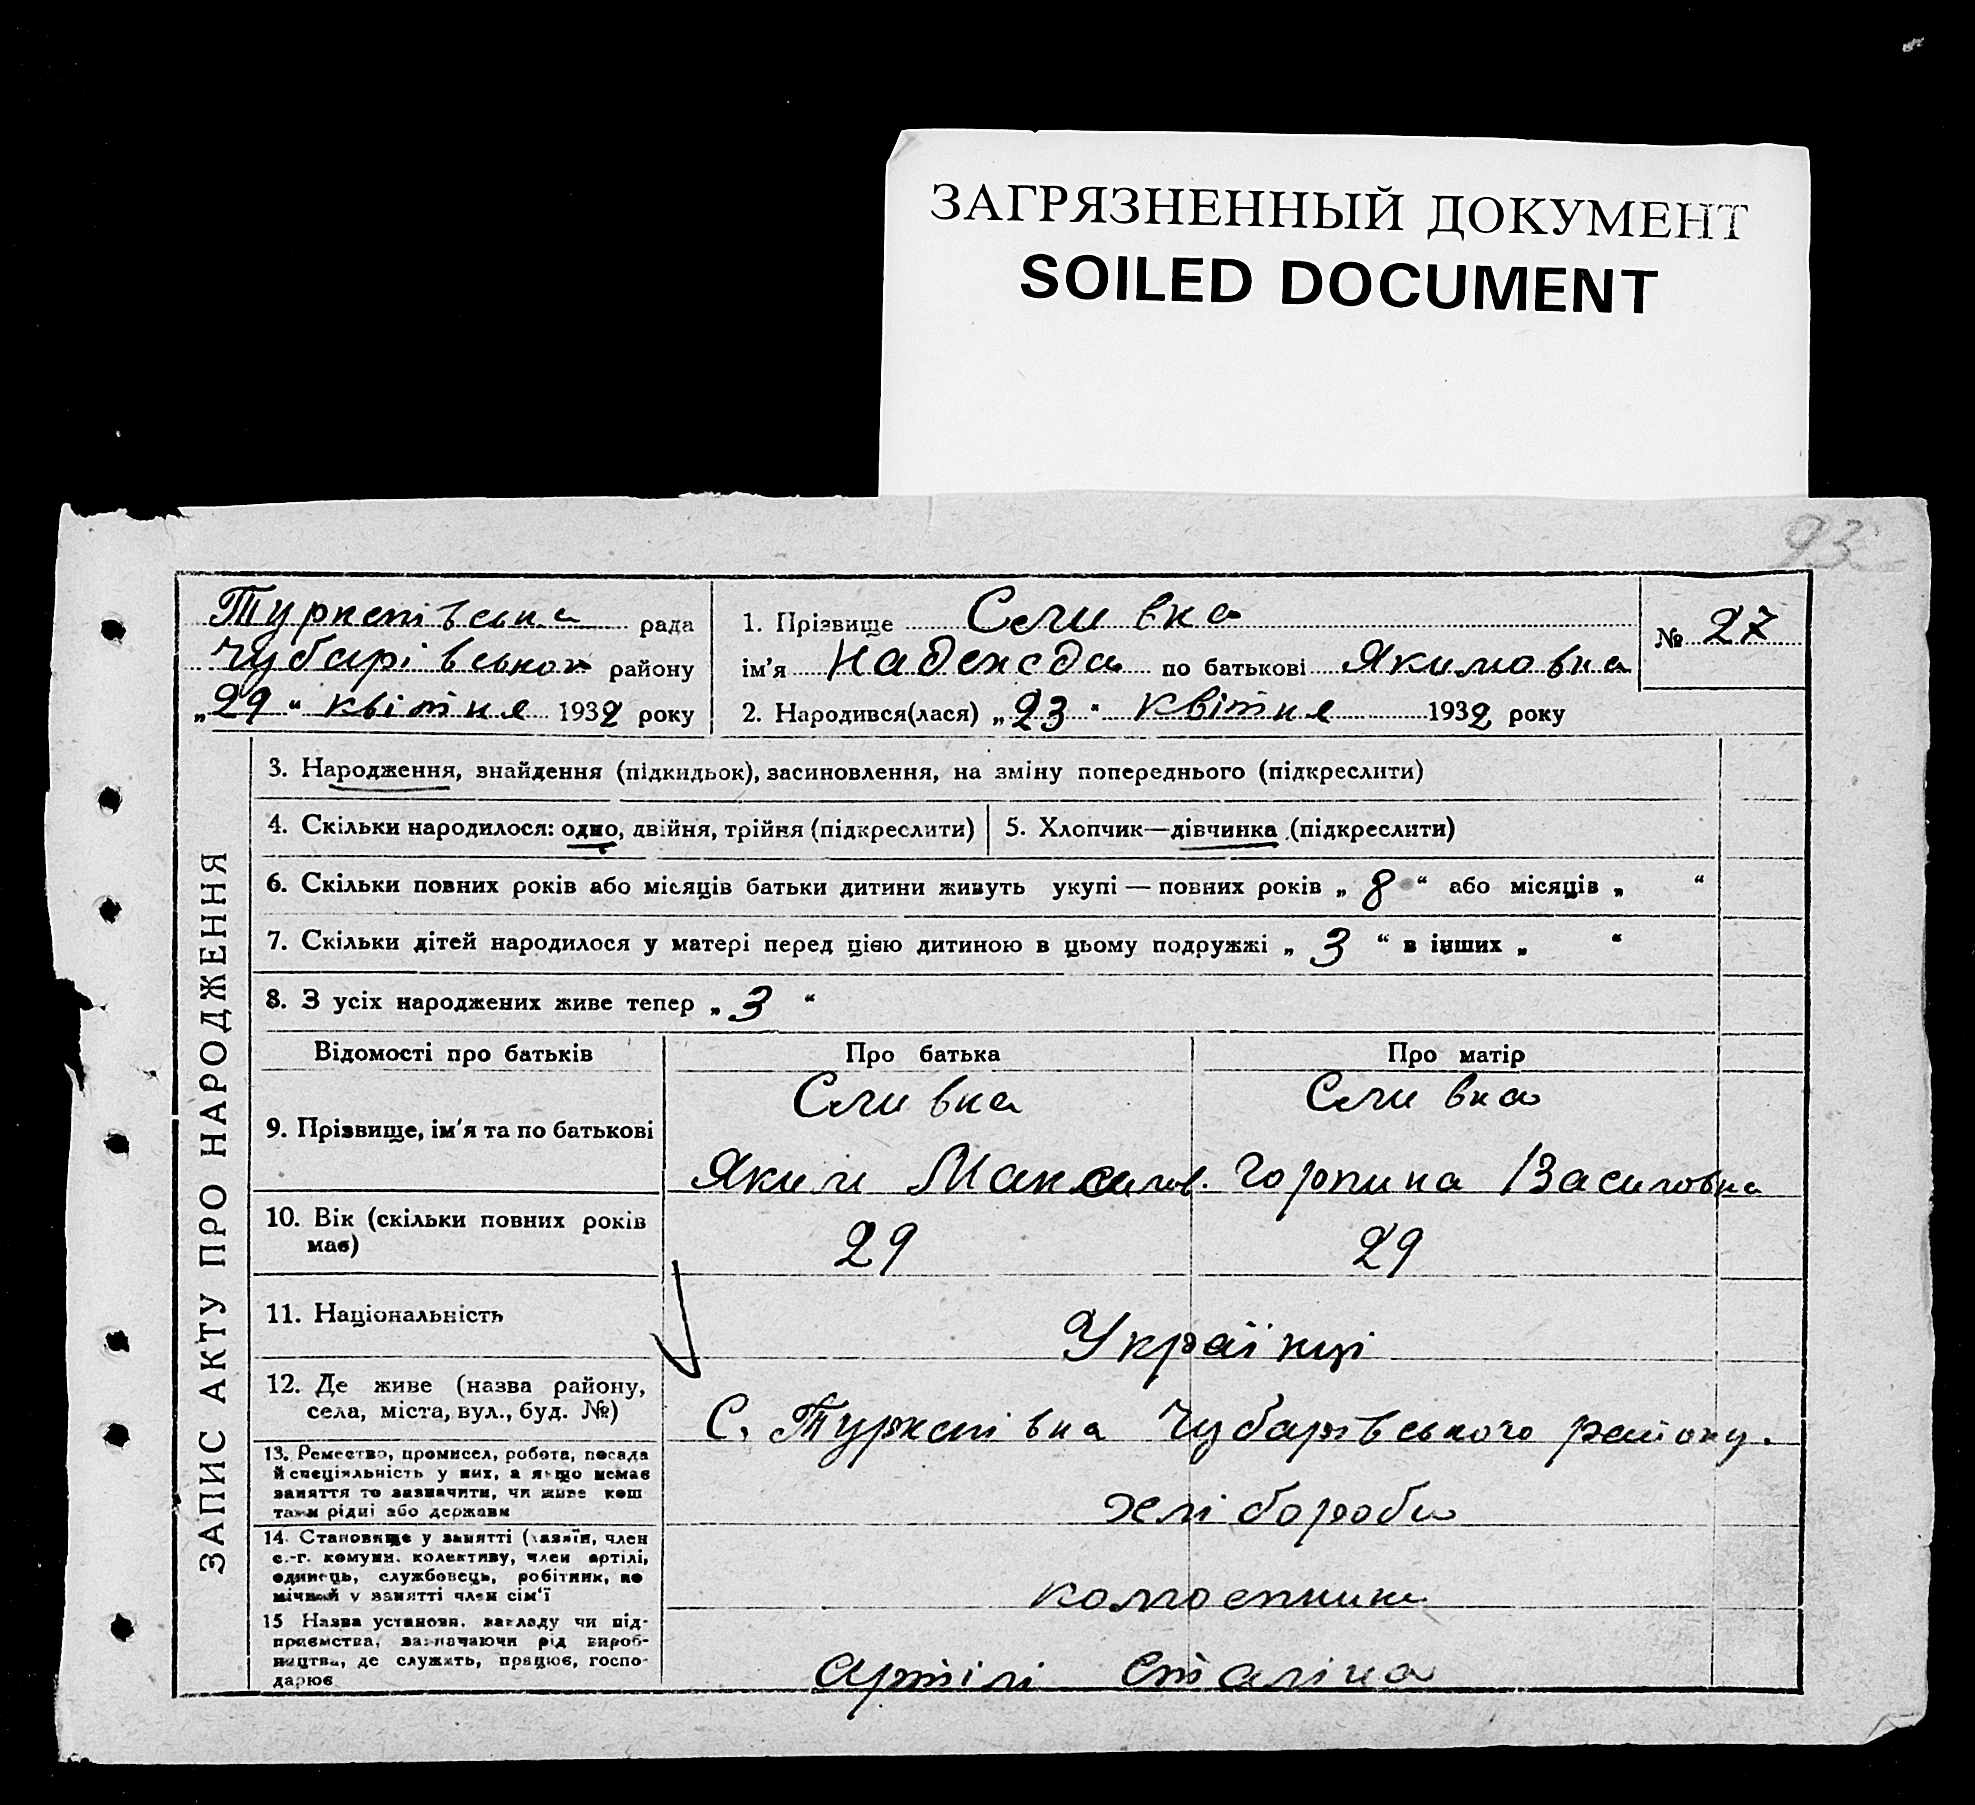 ЗАГРЯЗНЕННЫЙ ДОКУМЕНТ
SOILED DOCUMENT
93
Туркенівська рада
Чубарівського району
„29“ квітня 1932 року
1. Прізвище Сливка
ім'я Надежда по батькові Якимовна
№ 27
2. Народився(лася) „23“ квітня 1932 року
ЗАПИС АКТУ ПРО НАРОДЖЕННЯ
3. Народження, знайдення (підкидьок), засиновлення, на зміну попереднього (підкреслити)
4. Скільки народилося: одно, двійня, трійня (підкреслити)
5. Хлопчик—дівчинка (підкреслити)
6. Скільки повних років або місяців батьки дитини живуть укупі — повних років „8“ або місяців „ “
7. Скільки дітей народилося у матері перед цією дитиною в цьому подружжі „3“ в інших „ “
8. З усіх народжених живе тепер „3“
Відомості про батьків
Про батька
Про матір
9. Прізвище, ім'я та по батькові
Сливка
Яким Максимов.
Сливка
Горпина Василовна
10. Вік (скільки повних років
має)
29
29
11. Національність
Українці
12. Де живе (назва району,
села, міста, вул., буд. №)
С. Туркенівка Чубарівського району.
13. Ремество, промисел, робота, посада
й спеціяльність у них, а якщо немає
заняття то зазначити, чи живе кош
там рідні або держави
хлібороби
14. Становище у занятті (хазяїн, член
с.-г. комуни, колективу, член артілі,
одинець, службовець, робітник, по
мічний у занятті член сім'ї
колгоспники
15 Назва установи, закладу чи під-
приємства, зазначаючи рід вироб-
ництва, де служить, працює, госпо-
дарює
артілі Сталіна